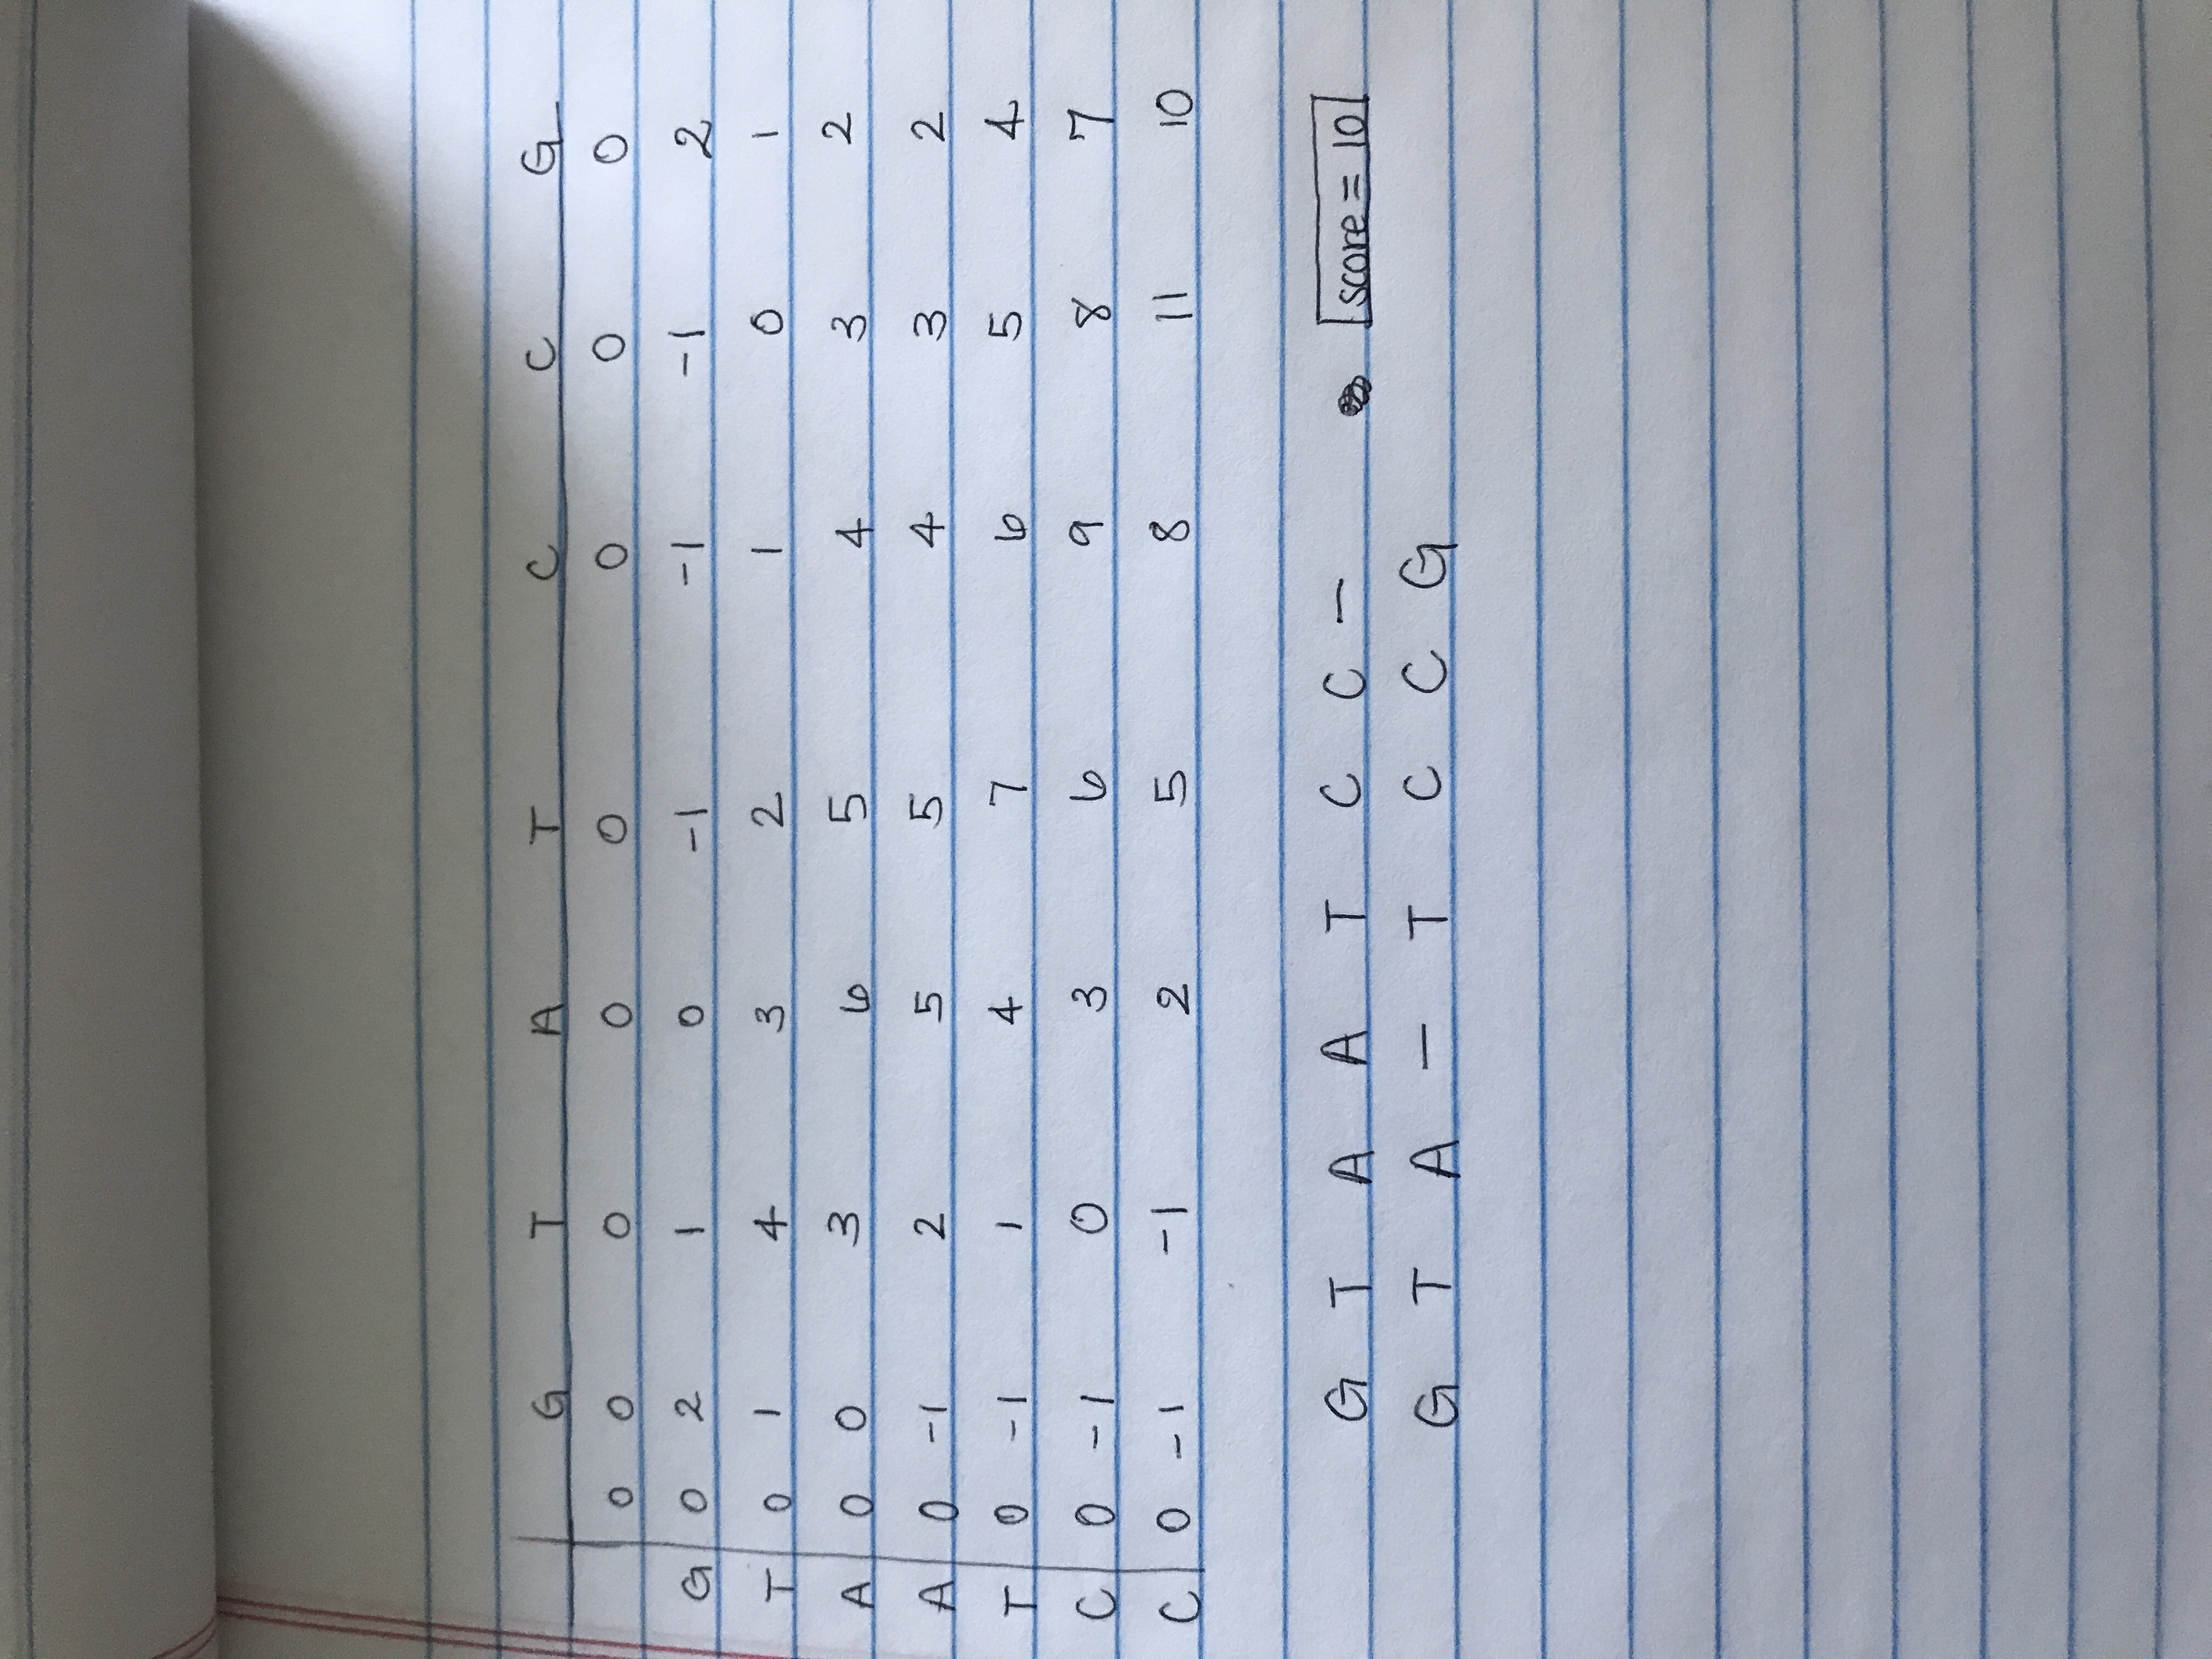 G T A T C C G
0 0 0 0 0 0 0 0
G 0 2 1 0 -1 -1 -1 2
T 0 1 4 3 2 1 0 1
A 0 0 3 6 5 4 3 2
A 0 -1 2 5 5 4 3 2
T 0 -1 1 4 7 6 5 4
C 0 -1 0 3 6 9 8 7
C 0 -1 -1 2 5 8 11 10
G T A A T C C – score = 10
G T A – T C C G